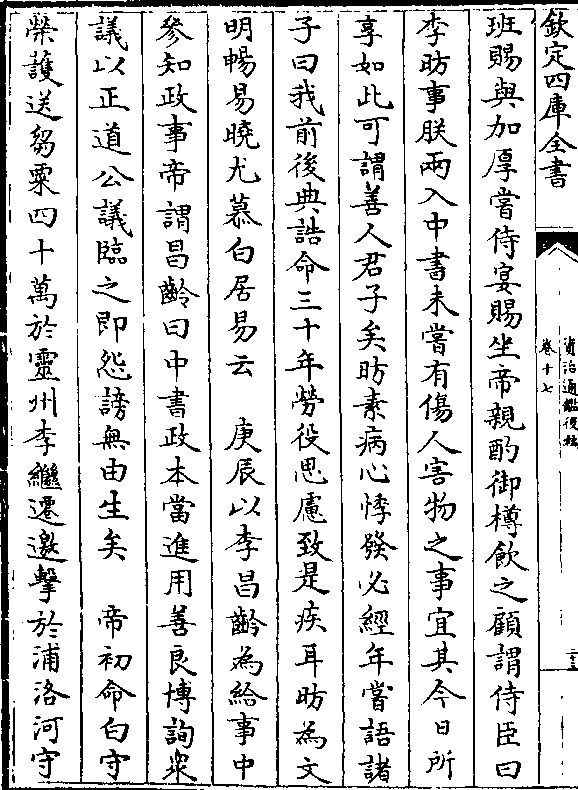 欽定四庫全書
資治通鑑後編
卷十七
班賜與加厚嘗侍宴賜坐帝親酌御樽飲之顧謂侍臣曰
李昉事朕兩入中書未嘗有傷人害物之事宜其今日所
享如此可謂善人君子矣昉素病心悸發必經年嘗語諸
子曰我前後典誥命三十年勞役思慮致是疾耳昉為文
明暢易曉尤慕白居易云　庚辰以李昌齡為給事中
參知政事帝謂昌齡曰中書政本當進用善良博詢衆
議以正道公議臨之即怨謗無由生矣　帝初命白守
榮護送芻粟四十萬於靈州李繼遷邀擊於浦洛河守